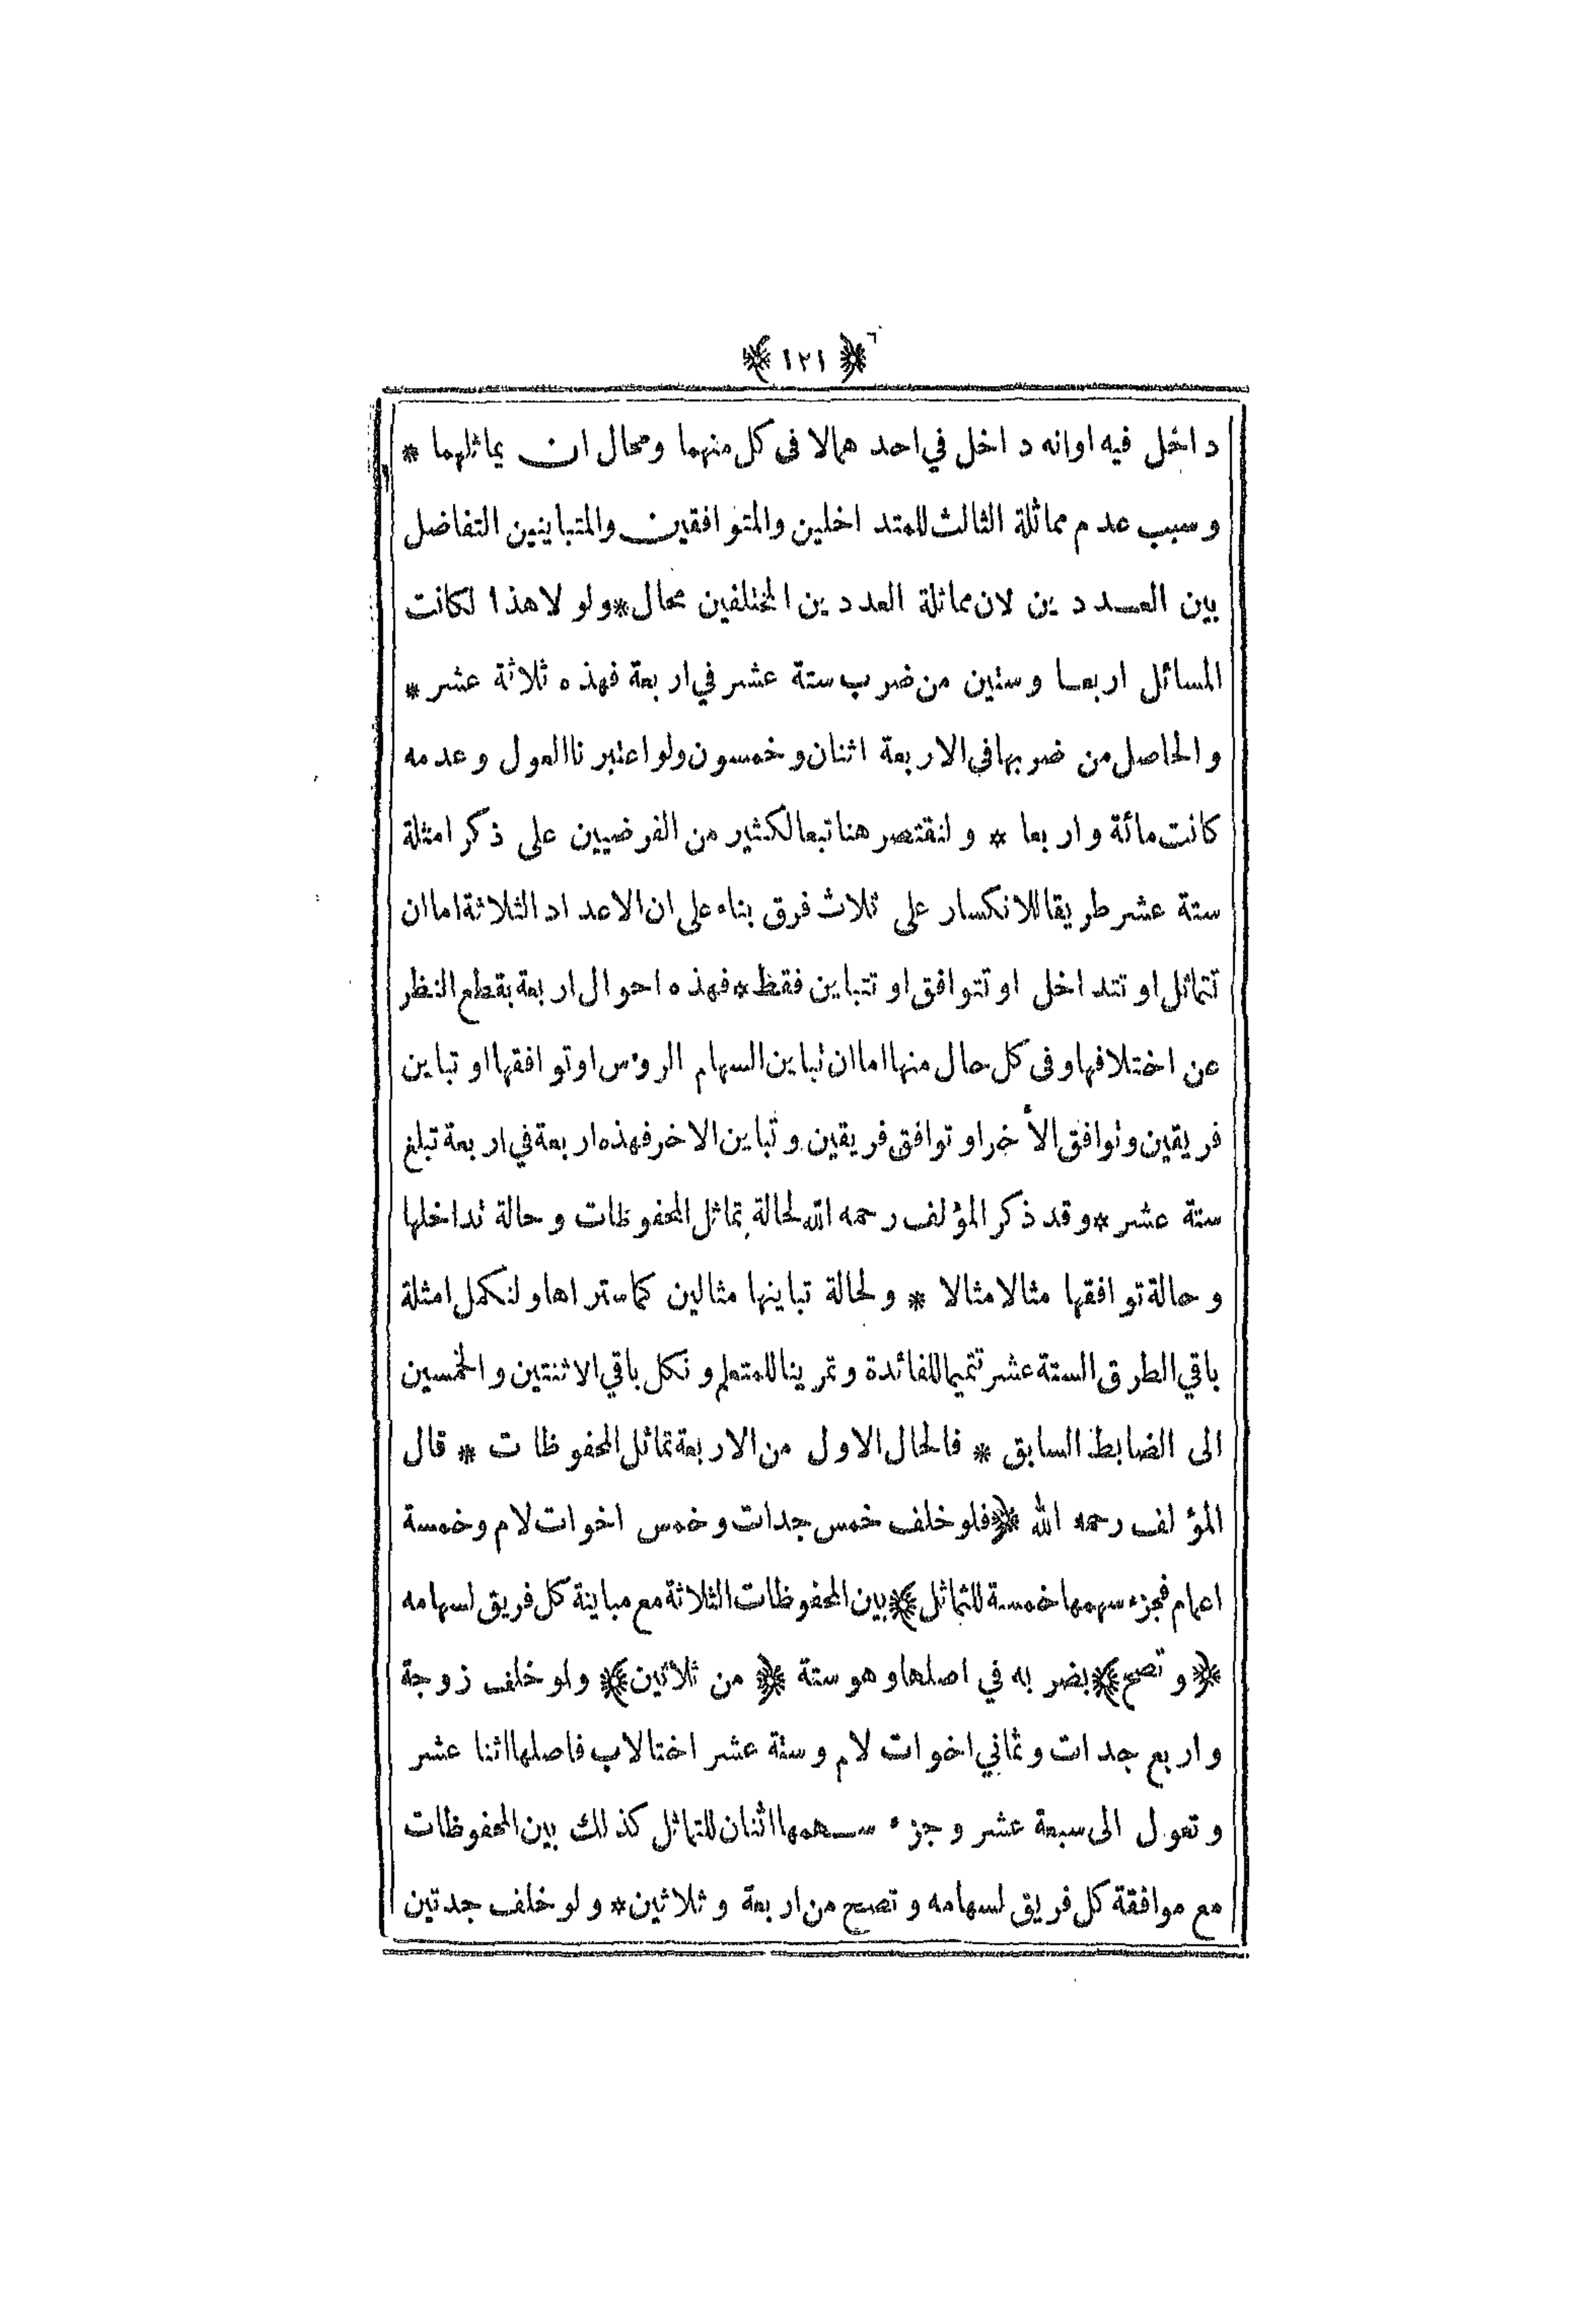 ﴿ ١٢١ ﴾
داخل فيه اوانه داخل في احد هما لا فى كل منهما ومحال ان يماثلهما *
وسبب عدم مماثلة الثالث للمتداخلين والمتوافقين والمتباينين التفاضل
بين العددين لان مماثلة العددين المختلفين محال * ولو لا هذا لكانت
المسائل اربعا وستين من ضرب ستة عشر في اربعة فهذه ثلاثة عشر *
والحاصل من ضربها فى الاربعة اثنان وخمسون ولو اعتبرنا العول وعدمه
كانت مائة واربعا * ولنقتصر هنا تبعا لكثير من الفرضيين على ذكر امثلة
ستة عشر طريقا للانكسار على ثلاث فرق بناء على ان الاعداد الثلاثة اما ان
تتماثل او تتداخل او تتوافق او تتباين فقط * فهذه احوال اربعة بقطع النظر
عن اختلافها وفى كل حال منها اما ان تباين السهام الروٴس او توافقها او تباين
فريقين وتوافق الأخر او توافق فريقين وتباين الاخر فهذه اربعة في اربعة تبلغ
ستة عشر * وقد ذكر المؤلف رحمه الله لحالة تماثل المحفوظات وحالة تداخلها
وحالة توافقها مثالا مثالا * ولحالة تباينها مثالين كما ستراها ولنكمل امثلة
باقي الطرق الستة عشر تتميما للفائدة وتمرينا للمتعلم ونكل باقي الاثنتين والخمسين
الى الضابط السابق * فالحال الاول من الاربعة تماثل المحفوظات * قال
المؤلف رحمه الله ﴿ فلو خلف خمس جدات وخمس اخوات لام وخمسة
اعمام فجزء سهمها خمسة للتماثل ﴾ بين المحفوظات الثلاثة مع مباينة كل فريق لسهامه
﴿ وتصح ﴾ بضربه في اصلها وهو ستة ﴿ من ثلاثين ﴾ ولو خلف زوجة
واربع جدات وثماني اخوات لام وستة عشر اختا لاب فاصلها اثنا عشر
وتعول الى سبعة عشر وجزء سهمها اثنان للتماثل كذلك بين المحفوظات
مع موافقة كل فريق لسهامه وتصح من اربعة وثلاثين * ولو خلف جدتين